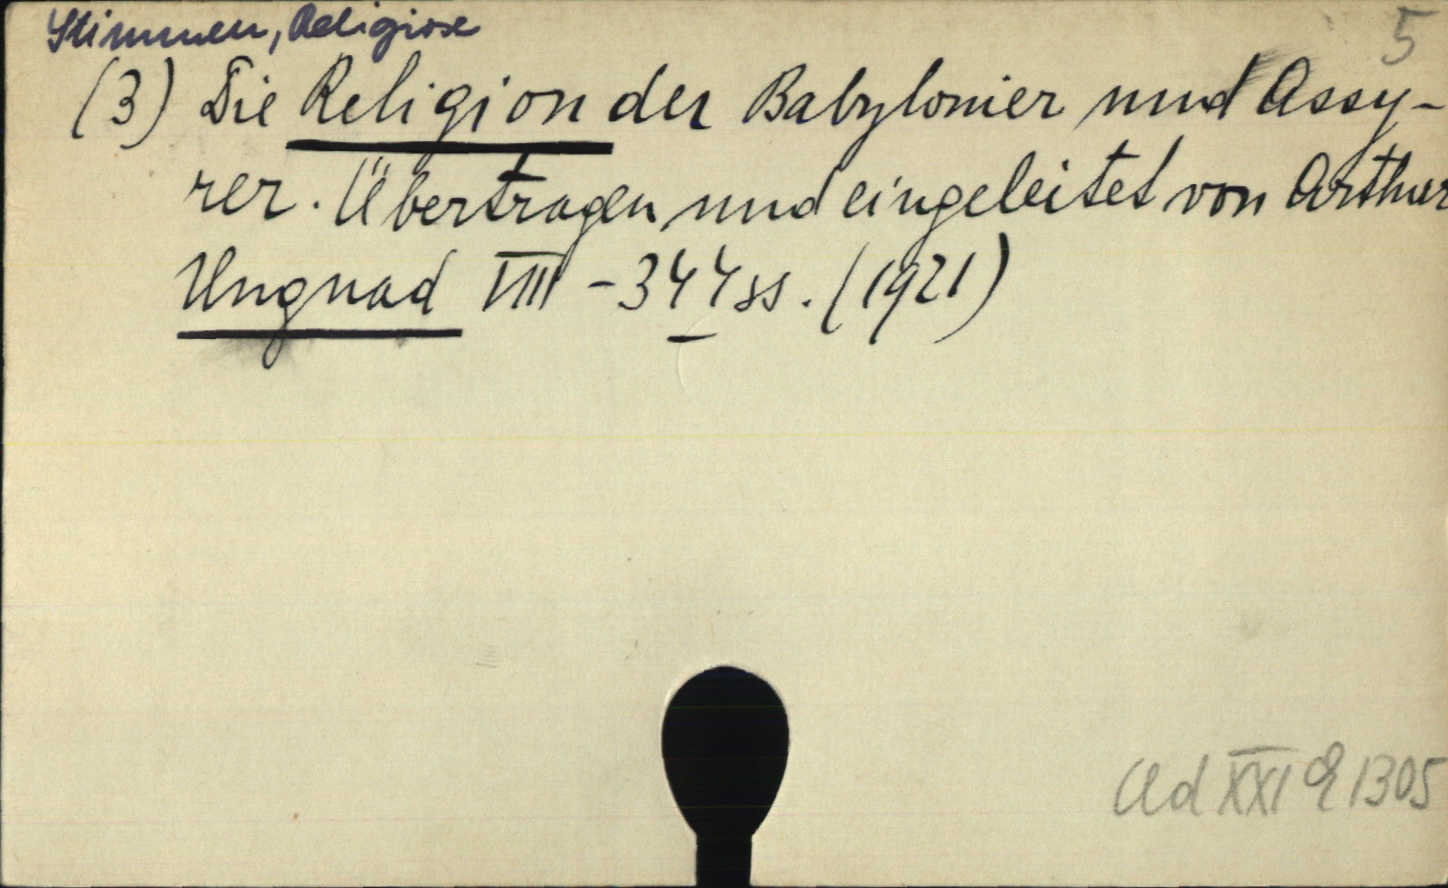 Stimmen, Religiose
5
(3) Die Religion der Babylonier und Assy-
rer. Übertragen und eingeleitet von Arthur
Ungnad VIII - 344 ss. (1921)
Ad XXI 1305